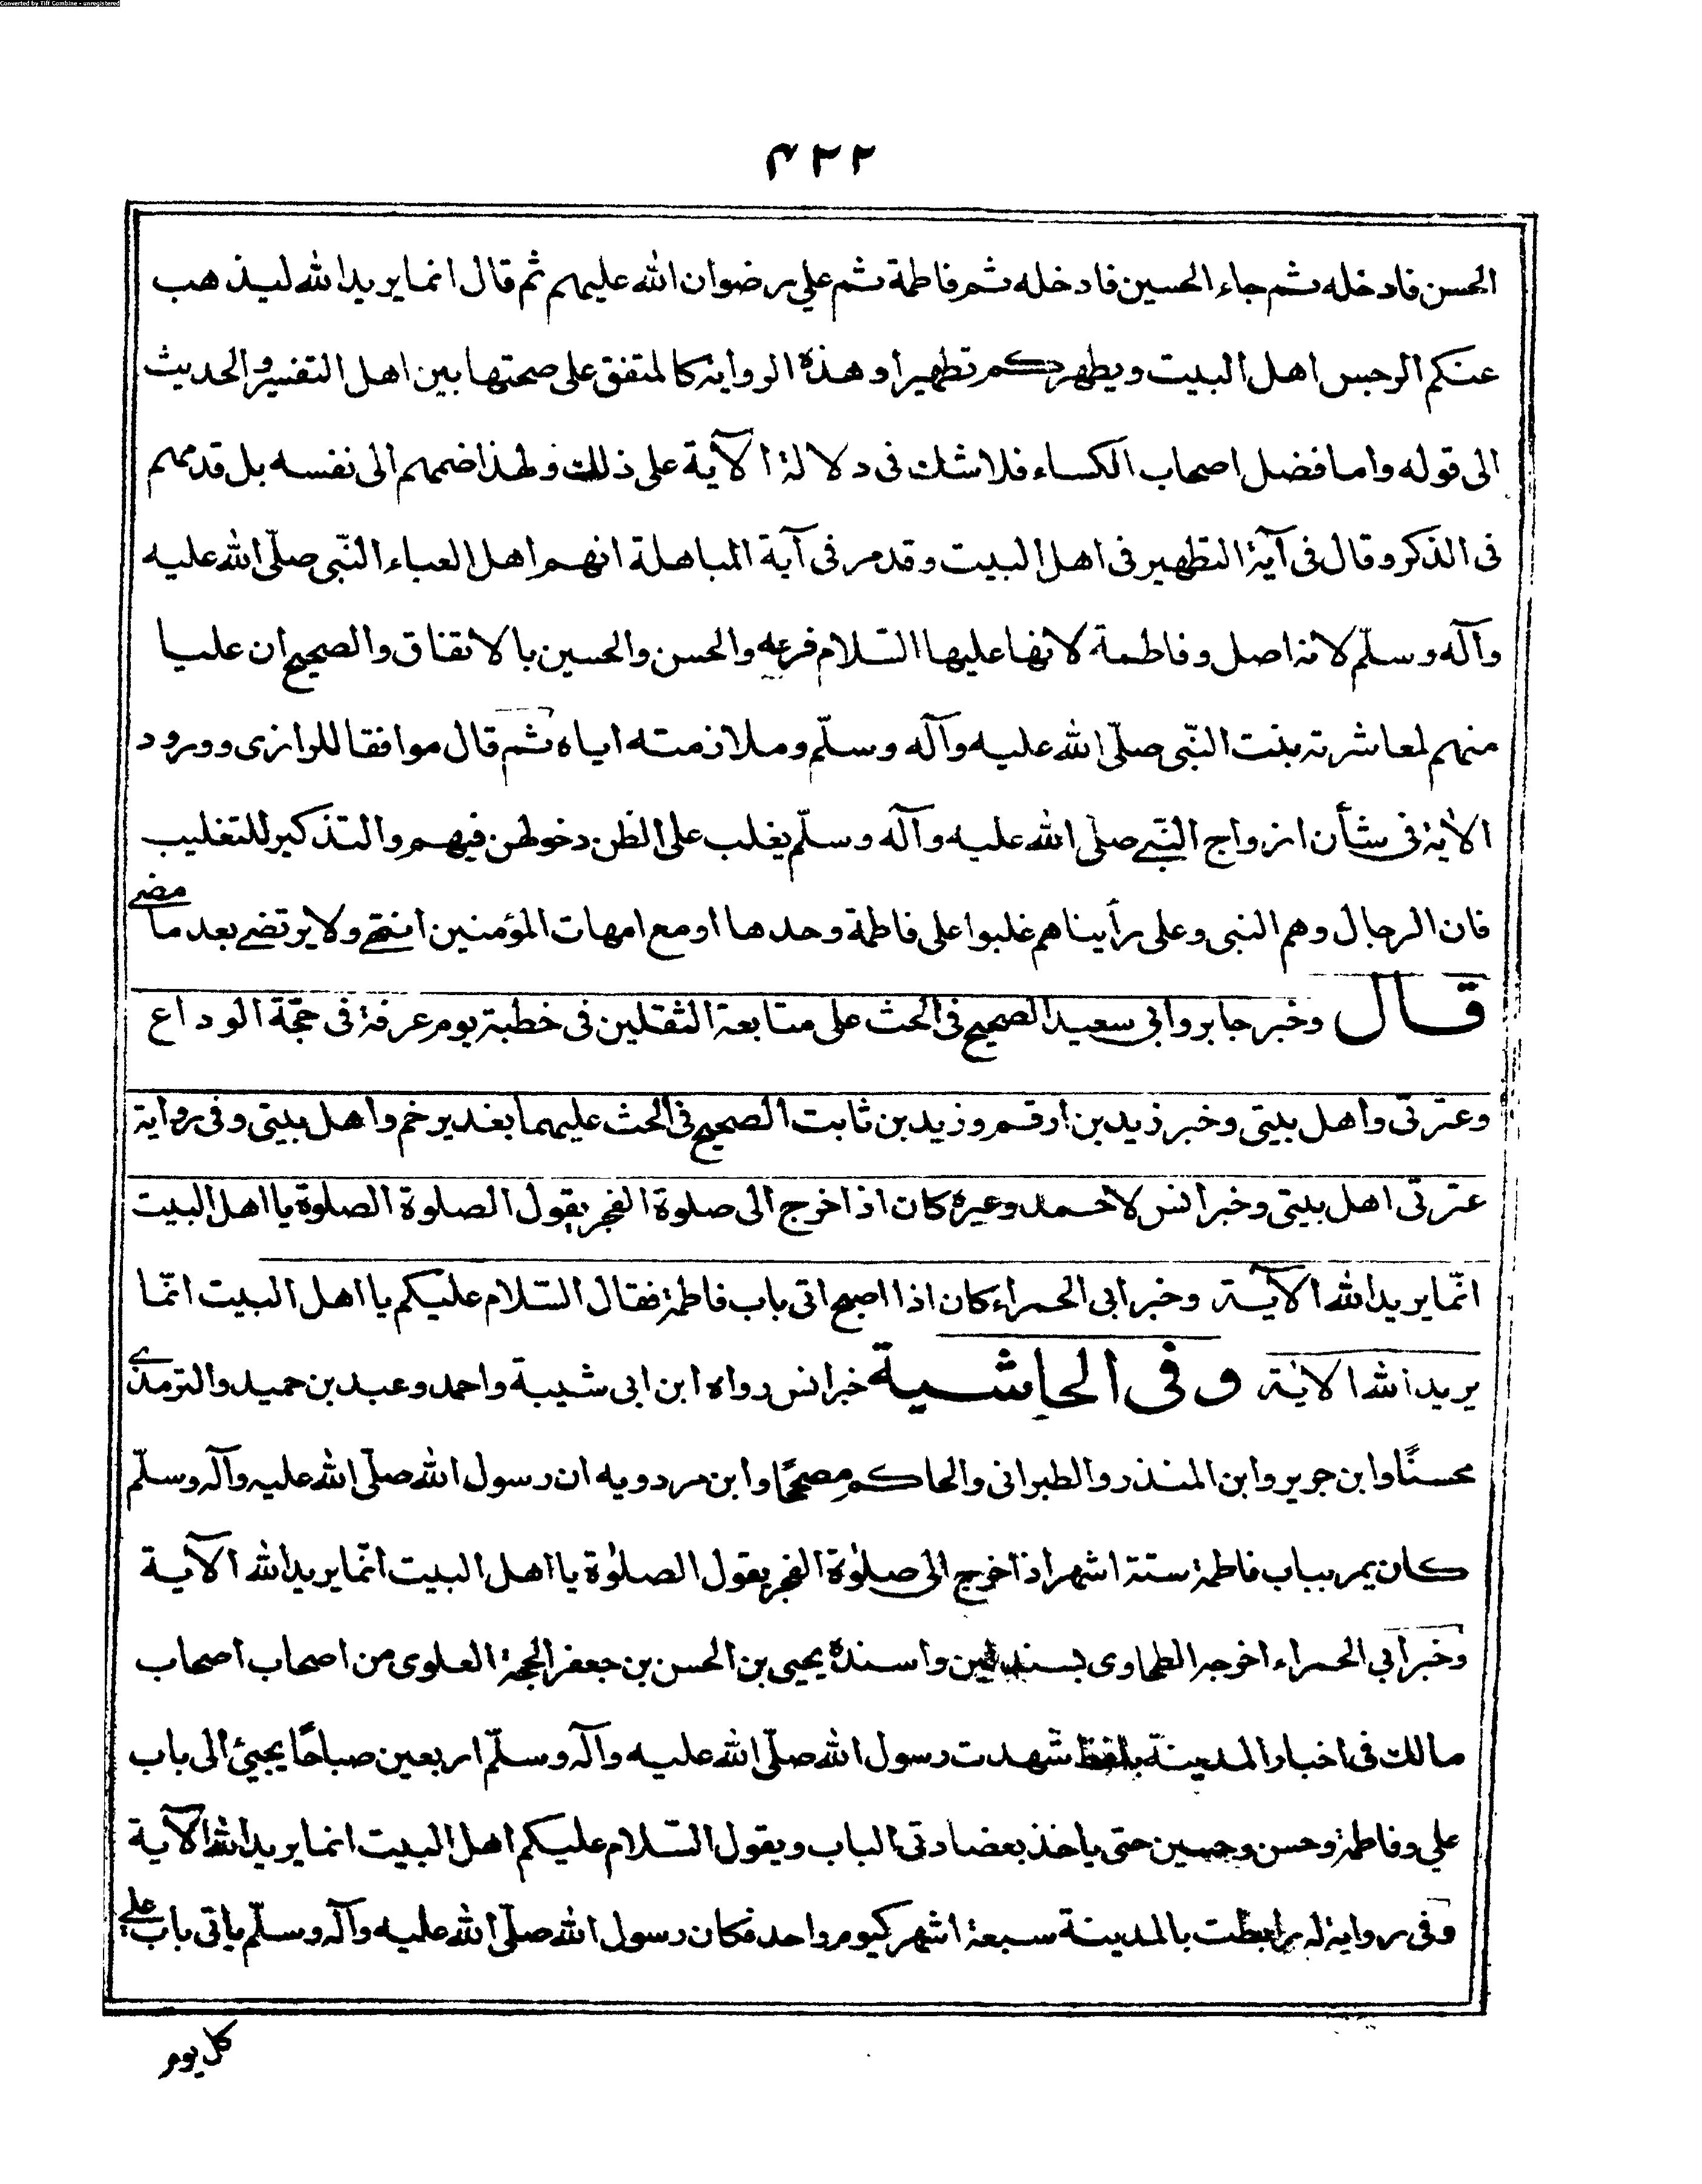 Converted by Tiff Combine - unregistered
۴۲۲
الحسن فادخله ثم جاء الحسين فادخله ثم فاطمة ثم علي رضوان الله عليهم ثم قال انما يريد الله ليذهب
عنكم الرجس اهل البيت ويطهركم تطهيرا وهذه الرواية كالمتفق على صحتها بين اهل التفسير والحديث
الى قوله واما فضل اصحاب الكساء فلا شك فى دلالة الآية على ذلك ولهذا ضمهم الى نفسه بل قدمهم
فى الذكر وقال فى آية التطهير فى اهل البيت وقد مر فى آية المباهلة انهم اهل العباء النّبى صلّى الله عليه
وآله وسلّم لانه اصل وفاطمة لانها عليها السّلام فرعه والحسن والحسين بالاتفاق والصحيح ان عليا
منهم لمعاشرته بنت النّبى صلّى الله عليه وآله وسلّم وملازمته اياه ثم قال موافقا للرازى وورود
الآية فى شأن ازواج النّبي صلى الله عليه وآله وسلّم يغلب على الظن دخولهن فيهم والتذكير للتغليب
فان الرجال وهم النبى وعلى رأيناهم غلبوا على فاطمة وحدها او مع امهات المؤمنين انتهى ولا يرتضي بعد ما مضي
قال وخبر جابر وابى سعيد الصحيح فى الحث على متابعة الثقلين فى خطبة يوم عرفة فى حجّة الوداع
وعترتى واهل بيتى وخبر زيد بن ارقم وزيد بن ثابت الصحيح فى الحث عليهما بغدير خم واهل بيتى وفى رواية
عترتى اهل بيتى وخبر انس لاحمد وغيره كان اذا خرج الى صلوة الفجر يقول الصلوة الصلوة يا اهل البيت
انّما يريد الله الآية وخبر ابى الحمراء كان اذا اصبح اتى باب فاطمة فقال السّلام عليكم يا اهل البيت انّما
يريد الله الآية وفى الحاشية خبر انس رواه ابن ابى شيبة واحمد وعبد بن حميد والترمذي
محسنًا وابن جرير وابن المنذر والطبرانى والحاكم مصححًا وابن مردويه ان رسول الله صلّى الله عليه وآله وسلّم
كان يمر بباب فاطمة ستة اشهر اذا خرج الى صلوٰة الفجر يقول الصلوٰة يا اهل البيت انّما يريد الله الآية
وخبر أبي الحمراء اخرجه الطحاوى بسندين واسنده يحيى بن الحسن بن جعفر الحجة العلوى من اصحاب اصحاب
مالك فى اخبار المدينة بلفظ شهدت رسول الله صلّى الله عليه وآله وسلّم اربعين صباحًا يجيئ الى باب
علي وفاطمة وحسن وحسين حتى ياخذ بعضادتى الباب ويقول السّلام عليكم اهل البيت انما يريد الله الآية
وفى رواية له رابطت بالمدينة سبعة اشهر كيوم واحد فكان رسول الله صلّى الله عليه وآله وسلّم ياتى باب علي
كل يوم